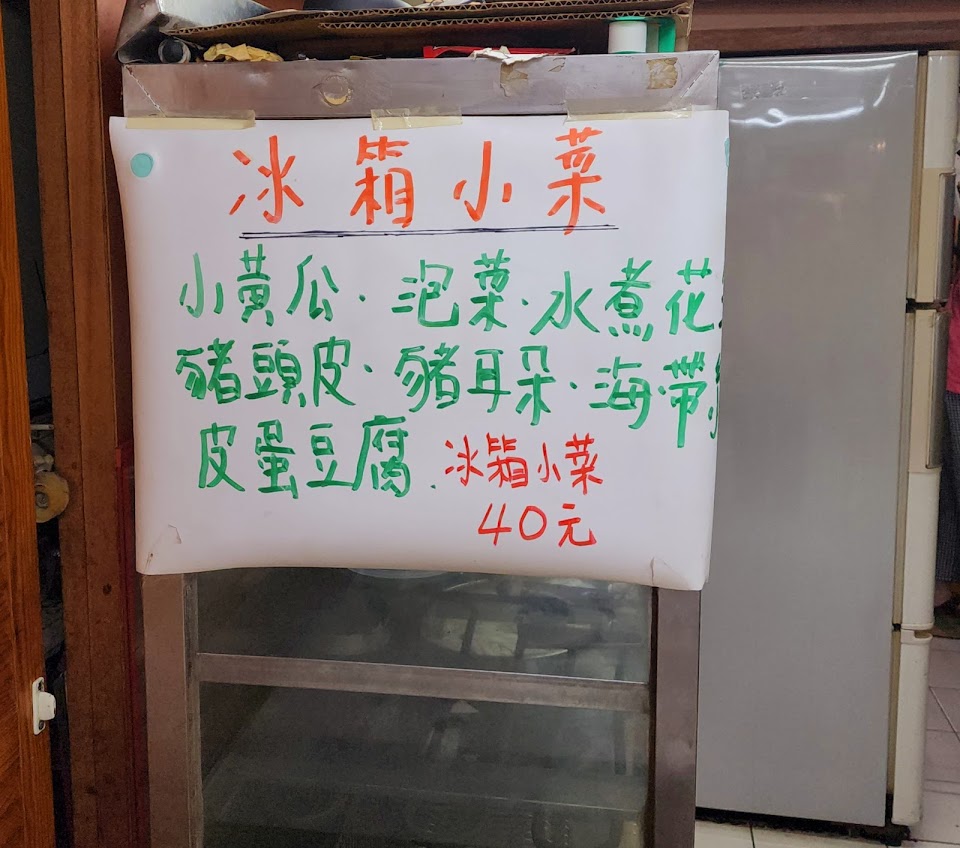 冰箱小菜
小黃瓜·泡菜·水煮花
豬頭皮·豬耳朵·海帶
皮蛋豆腐.冰箱小菜
40元